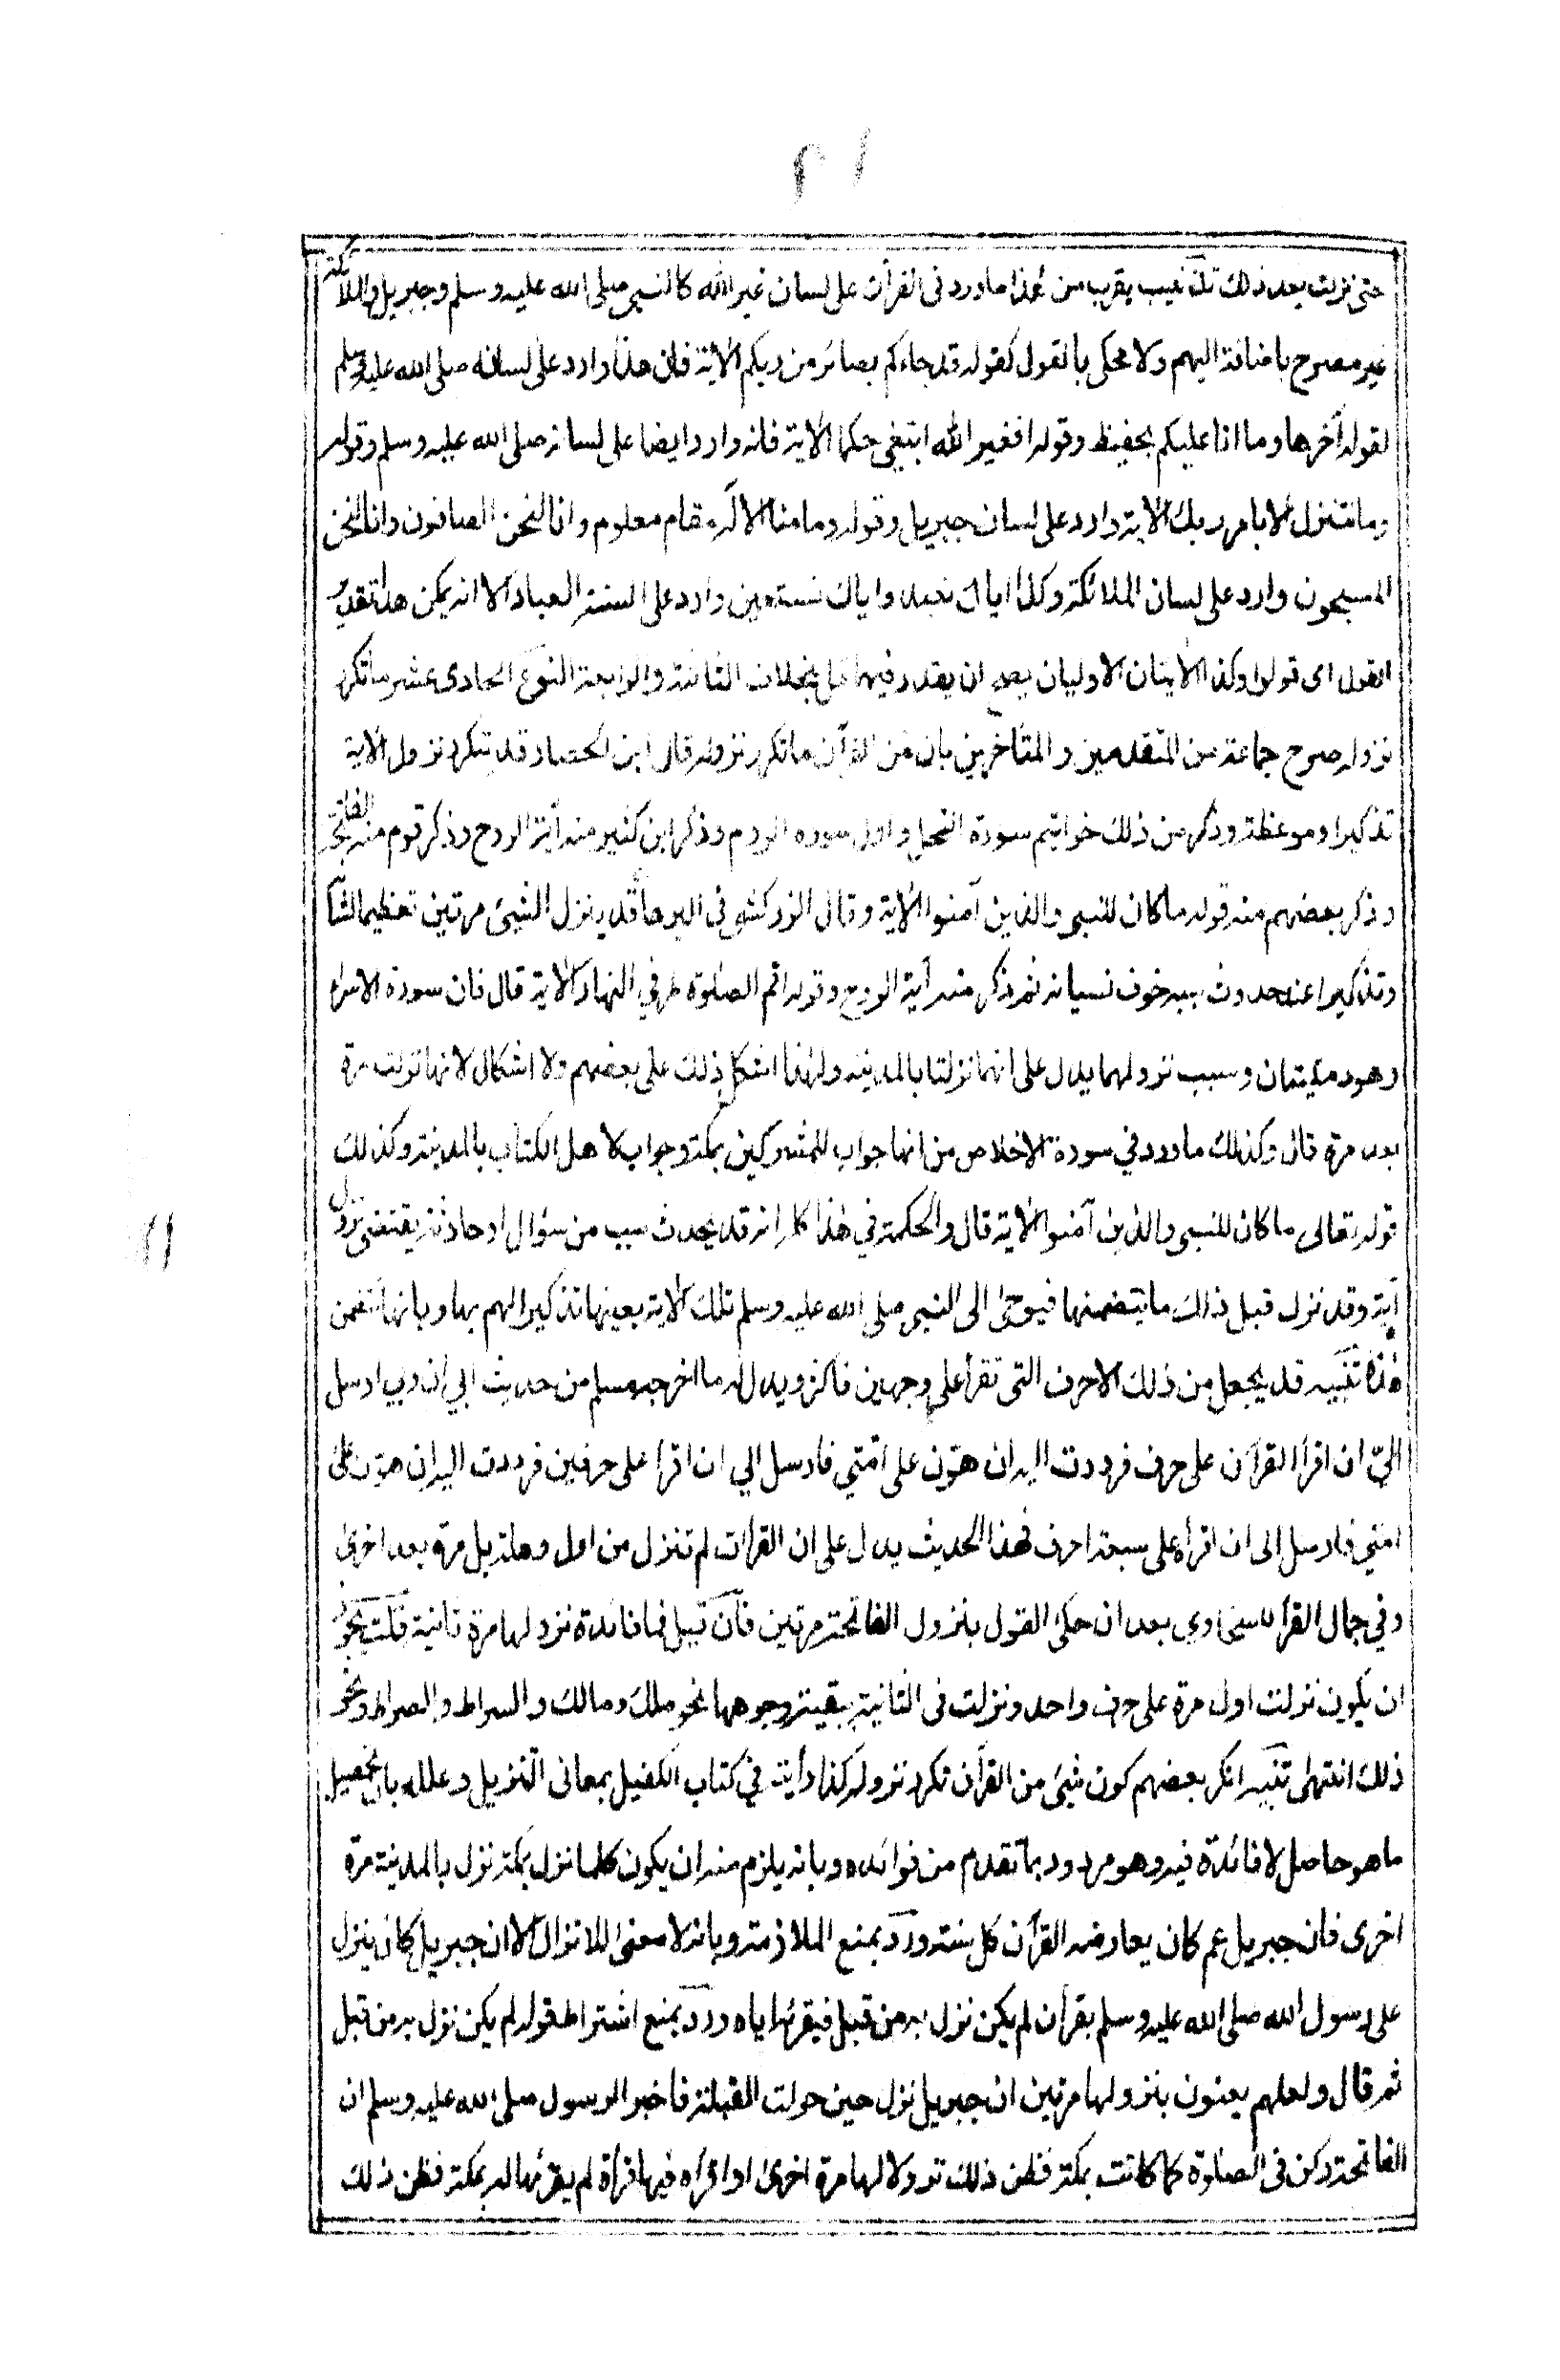 حتى نزلت بعد ذلك تذنيب يقرب من هذا ما ورد فى القرآن على لسان غير الله كالنبى صلى الله عليه وسلم وجبريل والملائكة
غير مصرح باضافته اليهم ولا محكى بالقول كقوله قد جاءكم بصائر من ربكم الاية فان هذا وارد على لسانه صلى الله عليه وسلم
لقوله آخرها وما انا عليكم بحفيظ وقوله افغير الله ابتغى حكما الاية فانه وارد ايضا على لسانه صلى الله عليه وسلم وقوله
وما نتنزل الا بامر ربك الاية وارد على لسان جبريل وقوله وما منا الا له مقام معلوم وانا لنحن الصافون وانا لنحن
المسبحون وارد على لسان الملائكة وكذا اياك نعبد واياك نستعين وارد على السنة العباد الا انه يمكن هنا تقدير
القول اى قولوا وكذا الايتان الاوليان يصح ان يقدر فيهما قل بخلاف الثالثة والرابعة النوع الحادى عشر ما تكرر
نزوله صرح جماعة من المتقدمين والمتأخرين بان من القرآن ما تكرر نزوله قال ابن الحصار قد يتكرر نزول الاية
تذكيرا وموعظة وذكر من ذلك خواتيم سورة النحل واول سورة الروم وذكر ابن كثير منه آية الروح وذكر قوم منه الفاتحة
وذكر بعضهم منه قوله ما كان للنبى والذين آمنوا الاية وقال الزركشى فى البرهان قد ينزل الشيئ مرتين تعظيما لشأنه
وتذكيرا عند حدوث سببه خوف نسيانه ثم ذكر منه آية الروح وقوله اقم الصلوة طرفي النهار الاية قال فان سورة الاسراء
وهود مكيتان وسبب نزولهما يدل على انهما نزلتا بالمدينة ولهذا اشكل ذلك على بعضهم ولا اشكال لانها نزلت مرة
بعد مرة قال وكذلك ما ورد في سورة الاخلاص من انها جواب للمشركين بمكة وجواب لاهل الكتاب بالمدينة وكذلك
قوله تعالى ما كان للنبى والذين آمنوا الاية قال والحكمة في هذا كله انه قد يحدث سبب من سؤال او حادثة يقتضى نزول
آية وقد نزل قبل ذلك ما يتضمنها فيوحى الى النبى صلى الله عليه وسلم تلك الاية بعينها تذكيرا لهم بها وبانها تتضمن
هذه تنبيه قد يجعل من ذلك الاحرف التى تقرأ على وجهين فاكثر ويدل له ما اخرجه مسلم من حديث ابي ان ربي ارسل
اليّ ان اقرأ القرآن على حرف فرددت اليه ان هوّن على امّتي فارسل الي ان اقرأ على حرفين فرددت اليه ان هوّن على
امتي فارسل الى ان اقرأه على سبعة احرف فهذا الحديث يدل على ان القراءت لم تنزل من اول وهلة بل مرة بعد اخرى
وفي جمال القراء للسخاوي بعد ان حكى القول بنزول الفاتحة مرتين فان قيل فما فائدة نزولها مرة ثانية قلت يجوز
ان يكون نزلت اول مرة على حرف واحد ونزلت فى الثانية ببقية وجوهها نحو ملك ومالك والسراط والصراط ونحو
ذلك انتهى تنبيه انكر بعضهم كون شيئ من القرآن تكرر نزوله كذا رأيته في كتاب الكفيل بمعانى التنزيل وعلله بان تحصيل
ما هو حاصل لا فائدة فيه وهو مردود بما تقدم من فوائده وبانه يلزم منه ان يكون كلما نزل بمكة نزل بالمدينة مرة
اخرى فان جبريل عم كان يعارضه القرآن كل سنة وردّ بمنع الملازمة وبانه لا معنى للانزال الا ان جبريل كان ينزل
على رسول الله صلى الله عليه وسلم بقرآن لم يكن نزل به من قبل فيقرئها اياه وردّ بمنع اشتراط قوله لم يكن نزل به من قبل
ثم قال ولعلهم يعنون بنزولها مرتين ان جبريل نزل حين حولت القبلة فاخبر الرسول صلى الله عليه وسلم ان
الفاتحة ركن فى الصلوة كما كانت بمكة فظن ذلك نزولا لها مرة اخرى او اقرأه فيها قرأة لم يقرئها له بمكة فظن ذلك